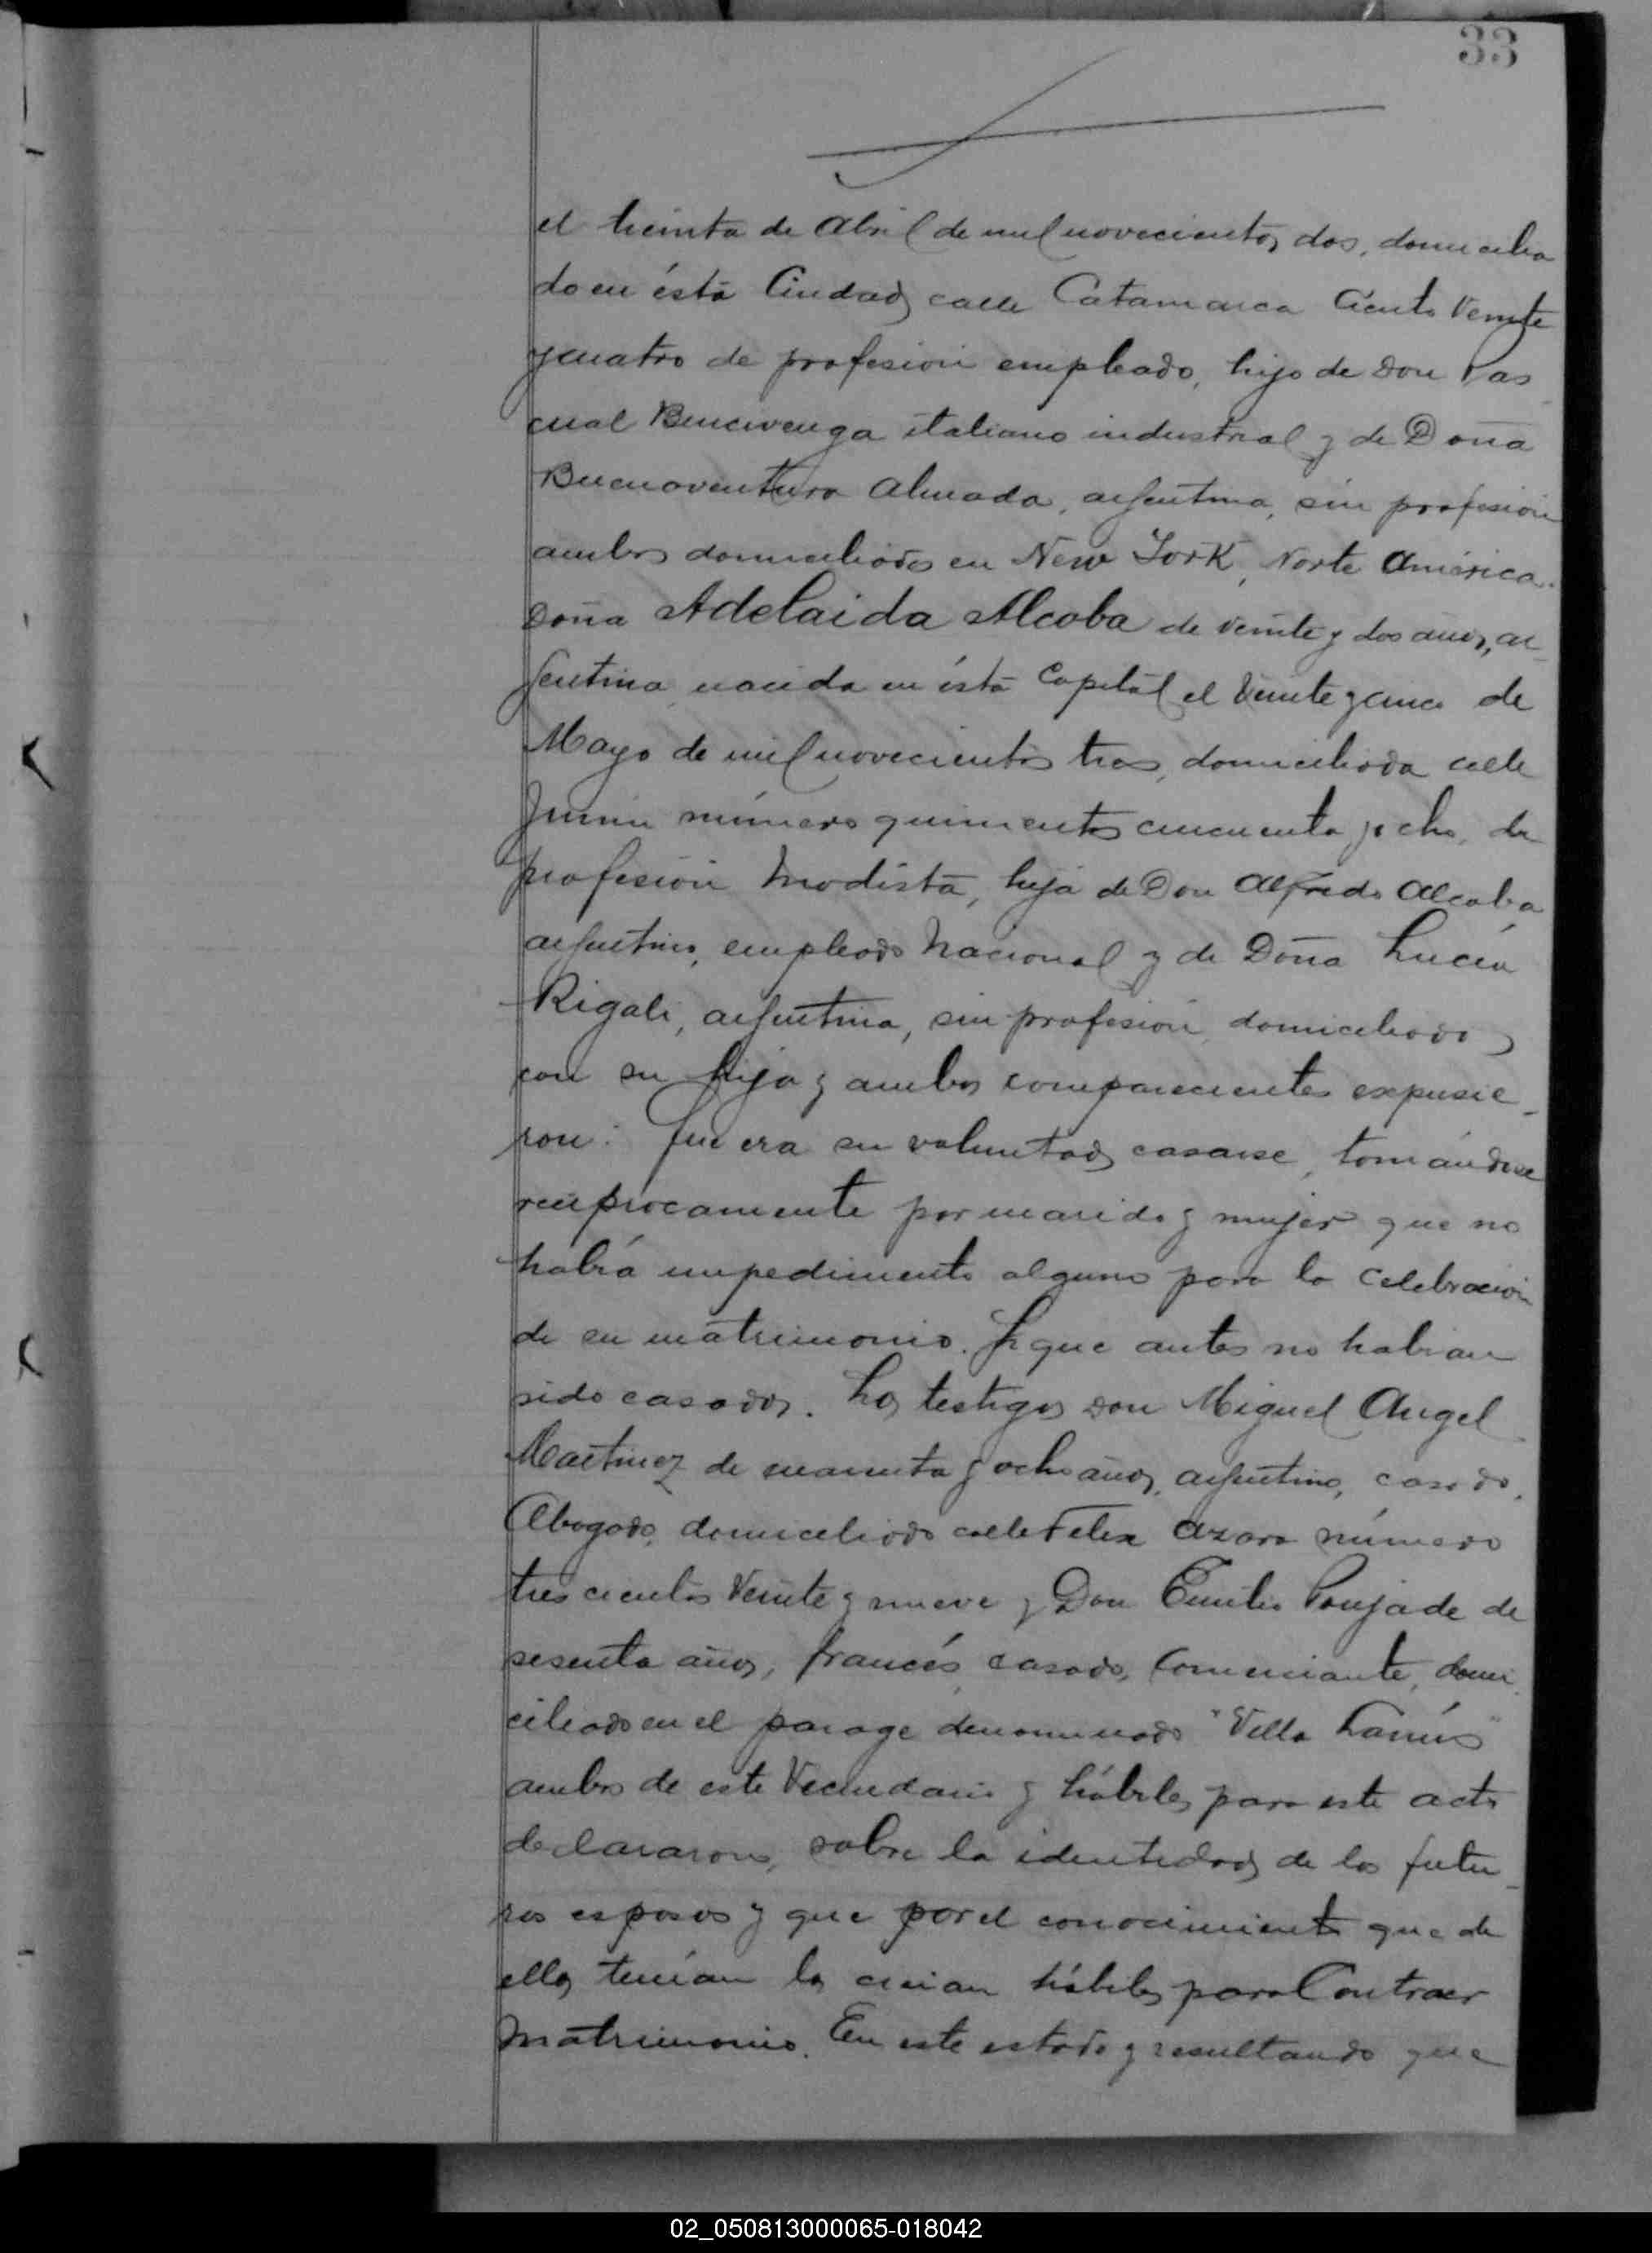 33
el treinta de Abril de mil novecientos dos, domicilia
do en ésta Ciudad calle Catamarca Ciento Veinte
y cuatro de profesión empleado, hijo de Don Pas
cual Bencivenga italiano industrial y de Doña
Buenaventura Almada, argentina, sin profesión
ambos domiciliados en New York, Norte América.
Doña Adelaida Alcoba de veinte y dos años, ar_
gentina nacida en ésta Capital el Veinte y cinco de
Mayo de mil novecientos tres, domiciliada calle
Junin número quinientos cincuenta y ocho, de
profesión Modista, hija de Don Alfredo Alcoba
argentino, empleado Nacional y de Doña Lucía
Rigali, argentina, sin profesión, domiciliados
con su hija y ambos comparecientes expusie_
ron: Que era su voluntad casarse, tomándose
recíprocamente por marido y mujer que no
había impedimento alguno para la Celebración
de su matrimonio. Y que antes no habian
sido casados. Los testigos Don Miguel Angel
Martinez de cuarenta y ocho años, argentino, casado,
Abogado, domiciliado calle Felix Azara número
tres cientos Veinte y nueve y Don Emilio Poujade de
sesenta años, francés, casado, Comerciante, domi
ciliado en el parage denominado "Villa Lanús"
ambos de este Vecindario y hábiles para este acto
declararon, sobre la identidad de los futu_
ros esposos y que por el conocimiento que de
ellos tenían los creian hábiles para Contraer
Matrimonio. En este estado y resultando que
02_050813000065-018042